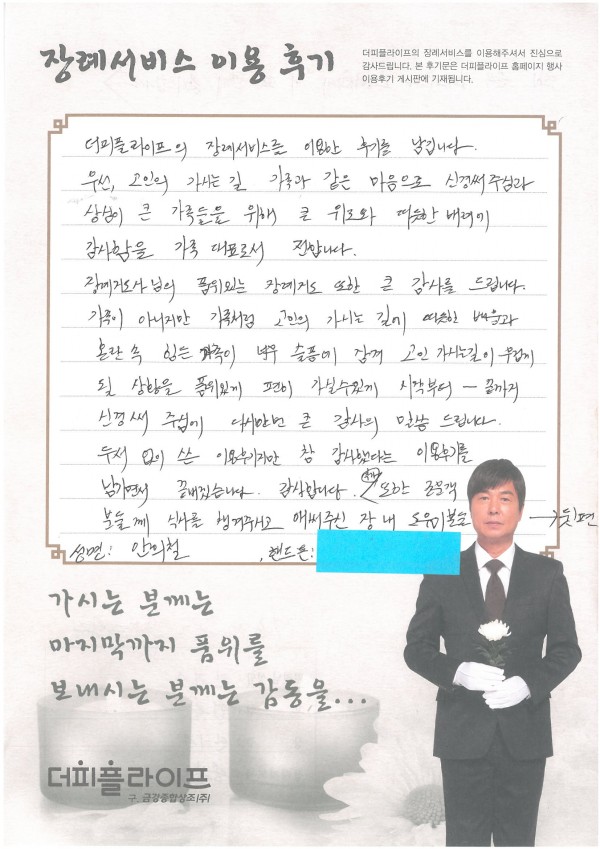 장례서비스 이용 후기
더피플라이프의 장례서비스를 이용해주셔서 진심으로
감사드립니다. 본 후기문은 더피플라이프 홈페이지 행사
이용후기 게시판에 기재됩니다.
더피플라이프의 장례서비스를 이용한 후기를 남깁니다.
우선, 고인의 가시는 길 가족과 같은 마음으로 신경써주심과
상심이 큰 가족들을 위해 큰 위로와 따뜻한 배려에
감사함을 가족 대표로서 전합니다.
장례지도사님의 품위있는 장례지도 또한 큰 감사를 드립니다.
가족이 아니지만 가족처럼 고인의 가시는 길에 따뜻한 배웅과
혼란 속 힘든 가족이 너무 슬픔에 잠겨 고인 가시는길이 무겁게
될 상황을 품위있게 편히 가실수있게 시작부터 - 끝까지
신경써 주심에 다시한번 큰 감사의 말씀 드립니다.
두서 없이 쓴 이용후기지만 참 감사했다는 이용후기를
남기면서 끝마치겠습니다. 감사합니다. 또한 조문객
분들께 식사를 챙겨주시고 애써주신 장내 도우미분들 → 뒷편
성명: 안의철 , 핸드폰:
가시는 분께는
마지막까지 품위를
보내시는 분께는 감동을...
더피플라이프
구. 금강종합상조(주)